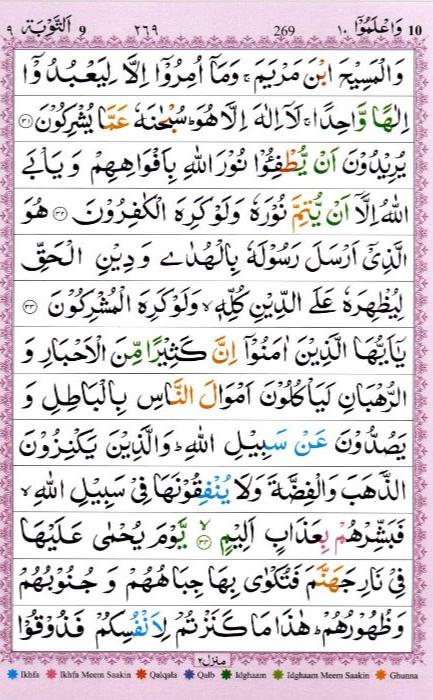 10 وَاعْلَمُوْٓا ١٠ 269 ٢٦٩ اَلتَّوْبَة 9 ٩
وَالْمَسِيْحَ ابْنَ مَرْيَمَ ۚ وَمَآ اُمِرُوْٓا اِلَّا لِيَعْبُدُوْٓا
اِلٰهًا وَّاحِدًا ۚ لَآ اِلٰهَ اِلَّا هُوَ ؕ سُبْحٰنَهٗ عَمَّا يُشْرِكُوْنَ ﴿۳۱﴾
يُرِيْدُوْنَ اَنْ يُّطْفِـُٔوْا نُوْرَ اللّٰهِ بِاَفْوَاهِهِمْ وَيَاْبَى
اللّٰهُ اِلَّآ اَنْ يُّتِمَّ نُوْرَهٗ وَلَوْ كَرِهَ الْكٰفِرُوْنَ ﴿۳۲﴾ هُوَ
الَّذِيْٓ اَرْسَلَ رَسُوْلَهٗ بِالْهُدٰى وَدِيْنِ الْحَقِّ
لِيُظْهِرَهٗ عَلَى الدِّيْنِ كُلِّهٖ ۙ وَلَوْ كَرِهَ الْمُشْرِكُوْنَ ﴿۳۳﴾
يٰٓاَيُّهَا الَّذِيْنَ اٰمَنُوْٓا اِنَّ كَثِيْرًا مِّنَ الْاَحْبَارِ وَ
الرُّهْبَانِ لَيَاْكُلُوْنَ اَمْوَالَ النَّاسِ بِالْبَاطِلِ وَ
يَصُدُّوْنَ عَنْ سَبِيْلِ اللّٰهِ ؕ وَالَّذِيْنَ يَكْنِزُوْنَ
الذَّهَبَ وَالْفِضَّةَ وَلَا يُنْفِقُوْنَهَا فِيْ سَبِيْلِ اللّٰهِ ۙ
فَبَشِّرْهُمْ بِعَذَابٍ اَلِيْمٍ ۙ﴿۳۴﴾ يَّوْمَ يُحْمٰى عَلَيْهَا
فِيْ نَارِ جَهَنَّمَ فَتُكْوٰى بِهَا جِبَاهُهُمْ وَ جُنُوْبُهُمْ
وَظُهُوْرُهُمْ ؕ هٰذَا مَا كَنَزْتُمْ لِاَنْفُسِكُمْ فَذُوْقُوْا
منزل ٢
Ikhfa Ikhfa Meem Saakin Qalqala Qalb Idghaam Idghaam Meem Saakin Ghunna